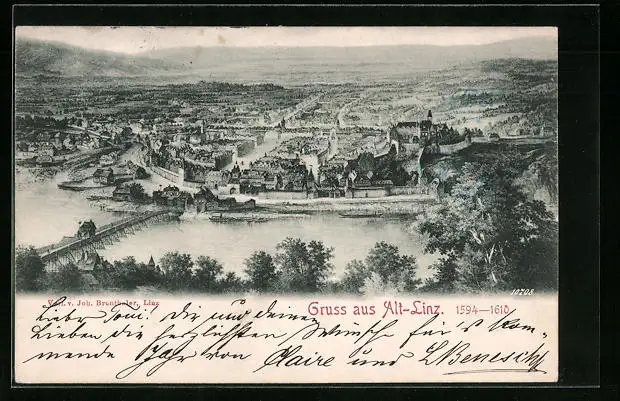 10708
Verl. v. Joh. Brunthaler, Linz
Gruss aus Alt-Linz. 1594—1610
Lieber Toni. Dir und deinen
Lieben die herzlichsten Wünsche fürs Kom-
mende Jahr von Claire und L. Benesch